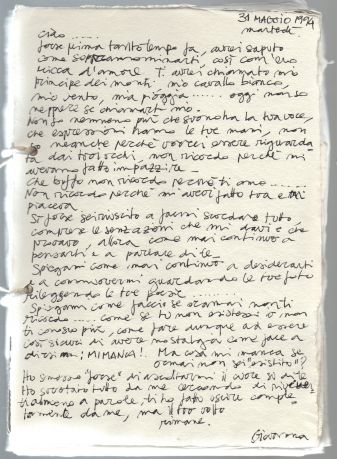 31 MAGGIO 1994
martedì.
ciao ......
forse prima tanto tempo fa, avrei saputo
come soprannominarti, così com'ero
ricca d'amore. Ti avrei chiamato mio
principe dei monti. mio cavallo bianco,
mio vento, mia pioggia ..... oggi non so
neppure se chiamarti mio.
Non so nemmeno più che suono ha la tua voce,
che espressioni hanno le tue mani, non
so neanche perché vorrei essere riguarda-
ta dai tuoi occhi, non ricordo perché mi
avevano fatto impazzire _
Che buffo non ricordo perché ti amo ......
Non ricordo perché mi avevi fatto tua e mi
piaceva.
Si forse sei riuscito a farmi scordare tutto,
comprese le sensazioni che mi davi e che
provavo, allora come mai continuo a
pensarti e a parlare di te _
Spiegami come mai continuo a desiderarti
e a commuovermi guardando le tue foto
rileggendo le tue poesie ......
Spiegami come faccio se oramai non ti
ricordo ..... come se tu non esistessi o non
ti conosco più, come fare dunque ad essere
così sicura di avere nostalgia come faccio a
dirmi: ¡MI MANCA!. Ma cosa mi manca se
oramai non sei "esistito"?
Ho smesso "forse" di ascoltarmi il cuore si
Ho svuotato tutto da me cercando di
a parole, ti ho fatto uscire comple-
tamente da me, ma il tuo volto
rimane.
Giovanna